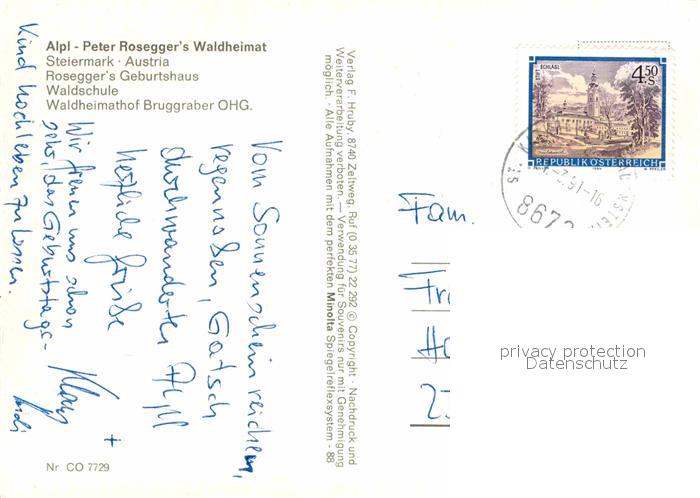 Alpl - Peter Rosegger's Waldheimat
Steiermark · Austria
Rosegger's Geburtshaus
Waldschule
Waldheimathof Bruggraber OHG.
Vom Sonnenscheinreichen,
regennaßen, Gatsch
durchwanderten Alpl
herzliche Grüße
Klaus
+
Wir freuen uns schon
sehr, das Geburtstags-
kind hochleben zu lassen.
Nr. CO 7729
Verlag F. Hruby, 8740 Zeltweg, Ruf (0 35 77) 22 292 © Copyright · Nachdruck und
Weiterverarbeitung verboten. — Verwendung für Souvenirs nur mit Genehmigung
möglich. · Alle Aufnahmen mit dem perfekten Minolta Spiegelreflexsystem - 88
STIFT SCHLÄGL
4.50 S
REPUBLIK ÖSTERREICH
91-16
8672
Fam.
Fr
privacy protection
Datenschutz